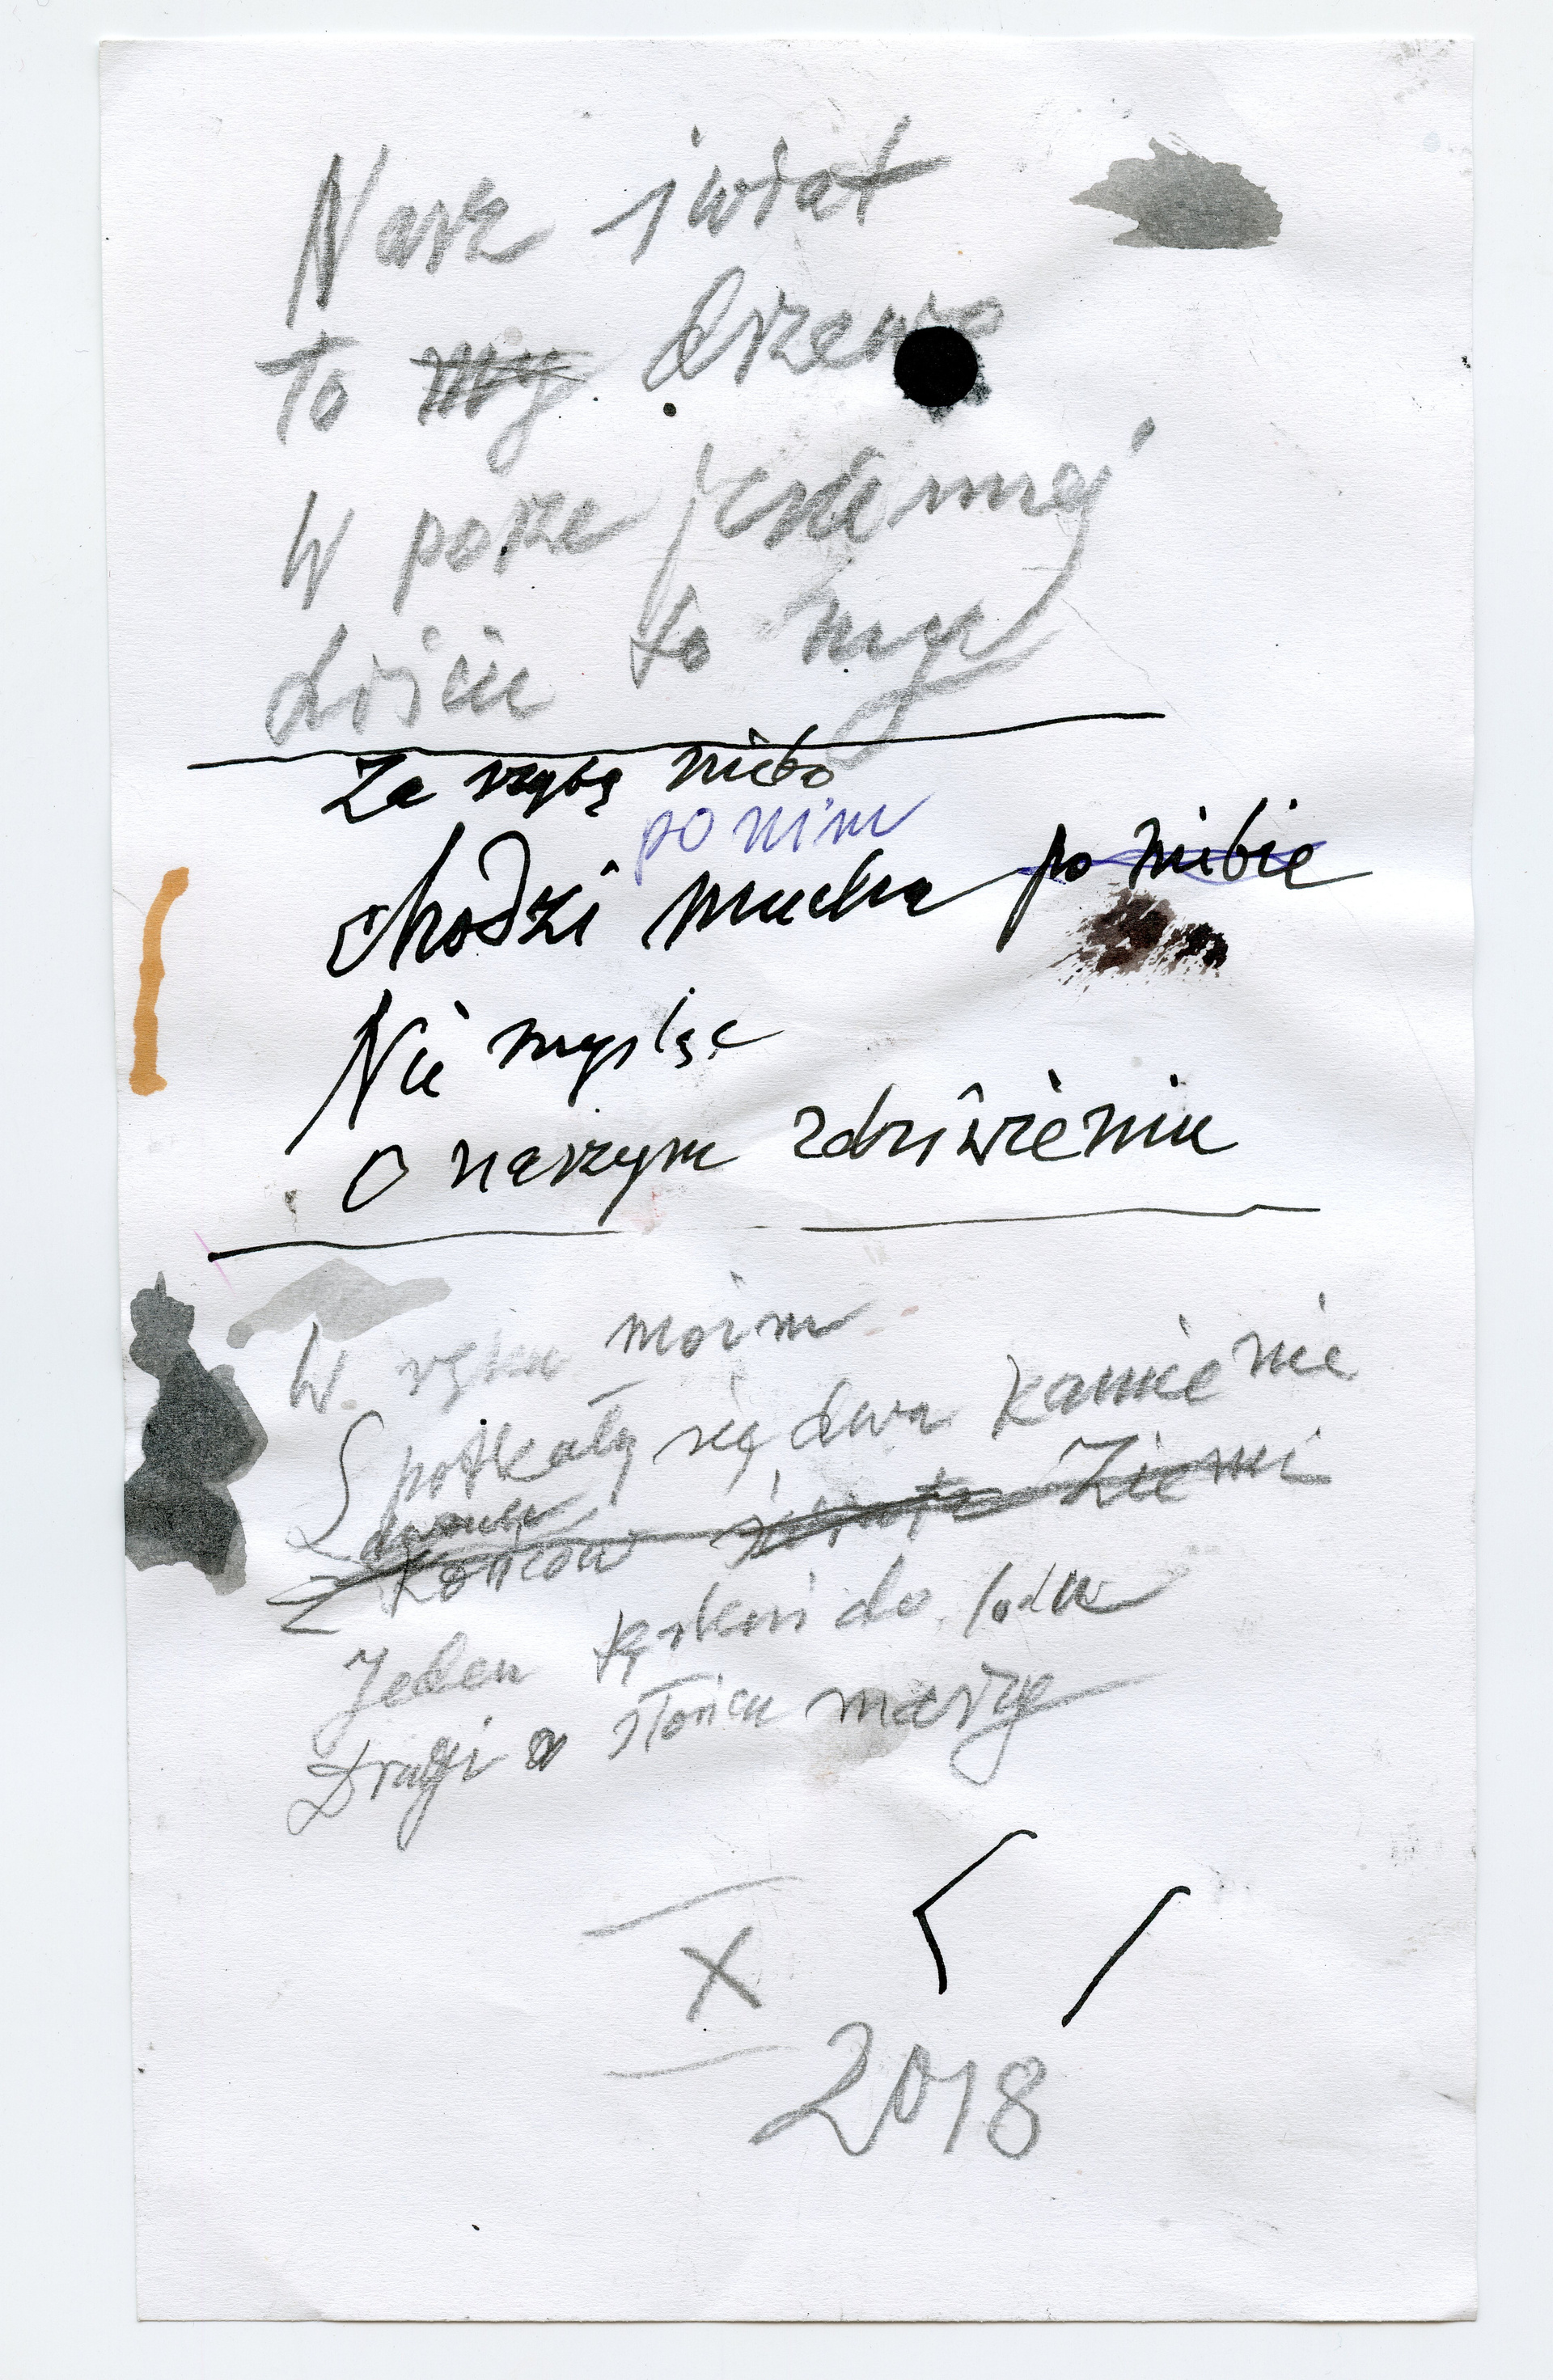 Nasz świat
To my drzewo
W porze jesiennej
Liście to my
Za szybą niebo
po nim
chodzi mucha po niebie
Nie myśląc
O naszym zdziwieniu
W ręku moim
Spotkały się dwa kamienie
z końców świata Ziemi
Jeden tęskni do lodu
Drugi o słońcu marzy
X
2018